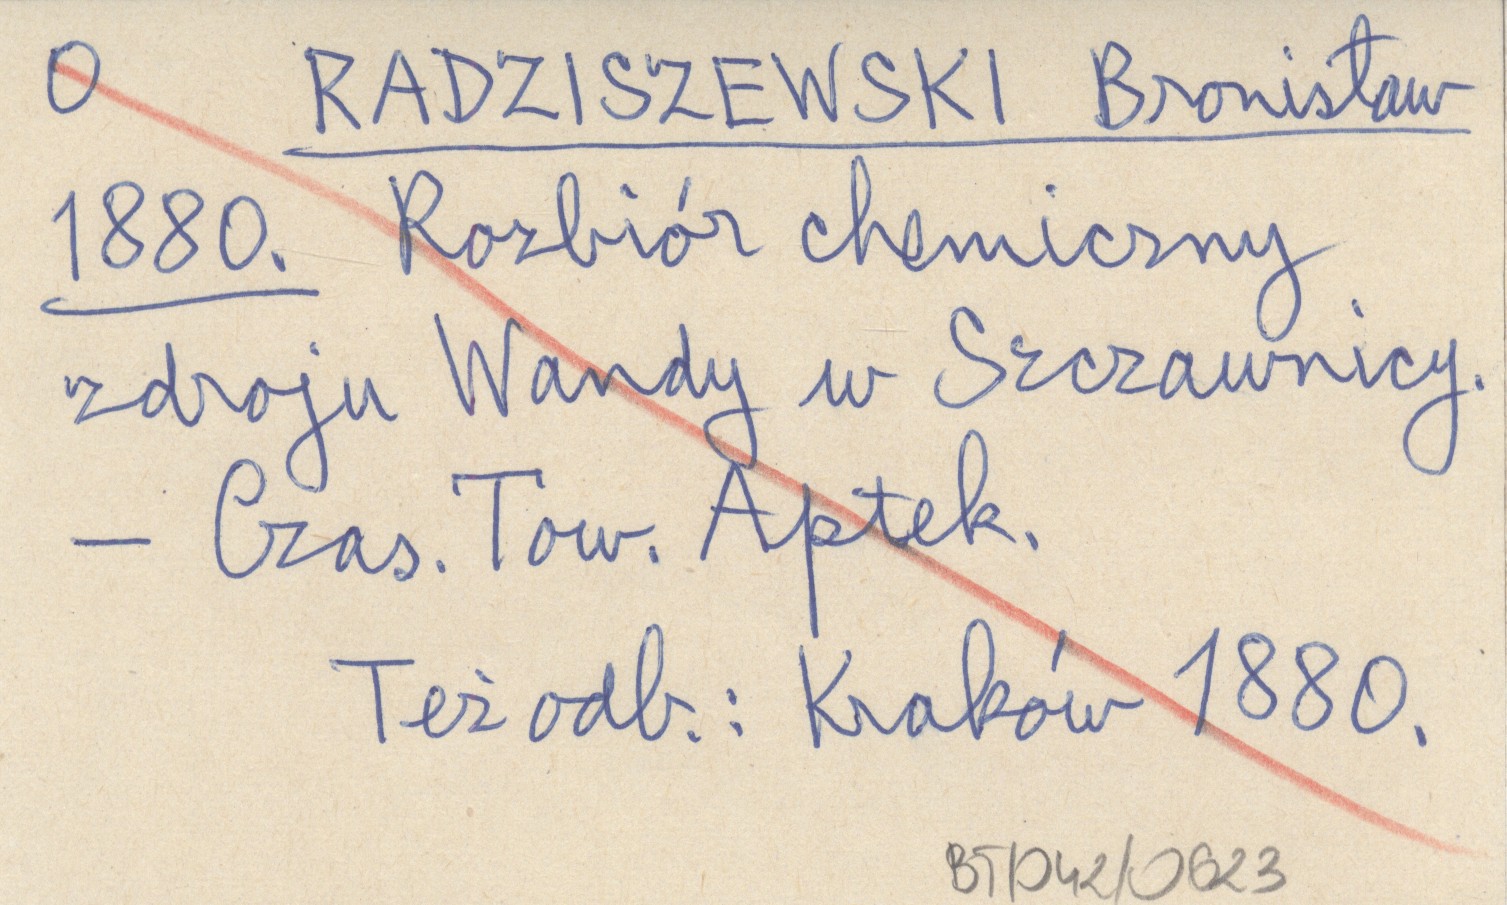 O RADZISZEWSKI Bronisław
1880. Rozbiór chemiczny
zdroju Wandy w Szczawnicy.
— Czas. Tow. Aptek.
Też odb.: Kraków 1880.
BT/042/0623